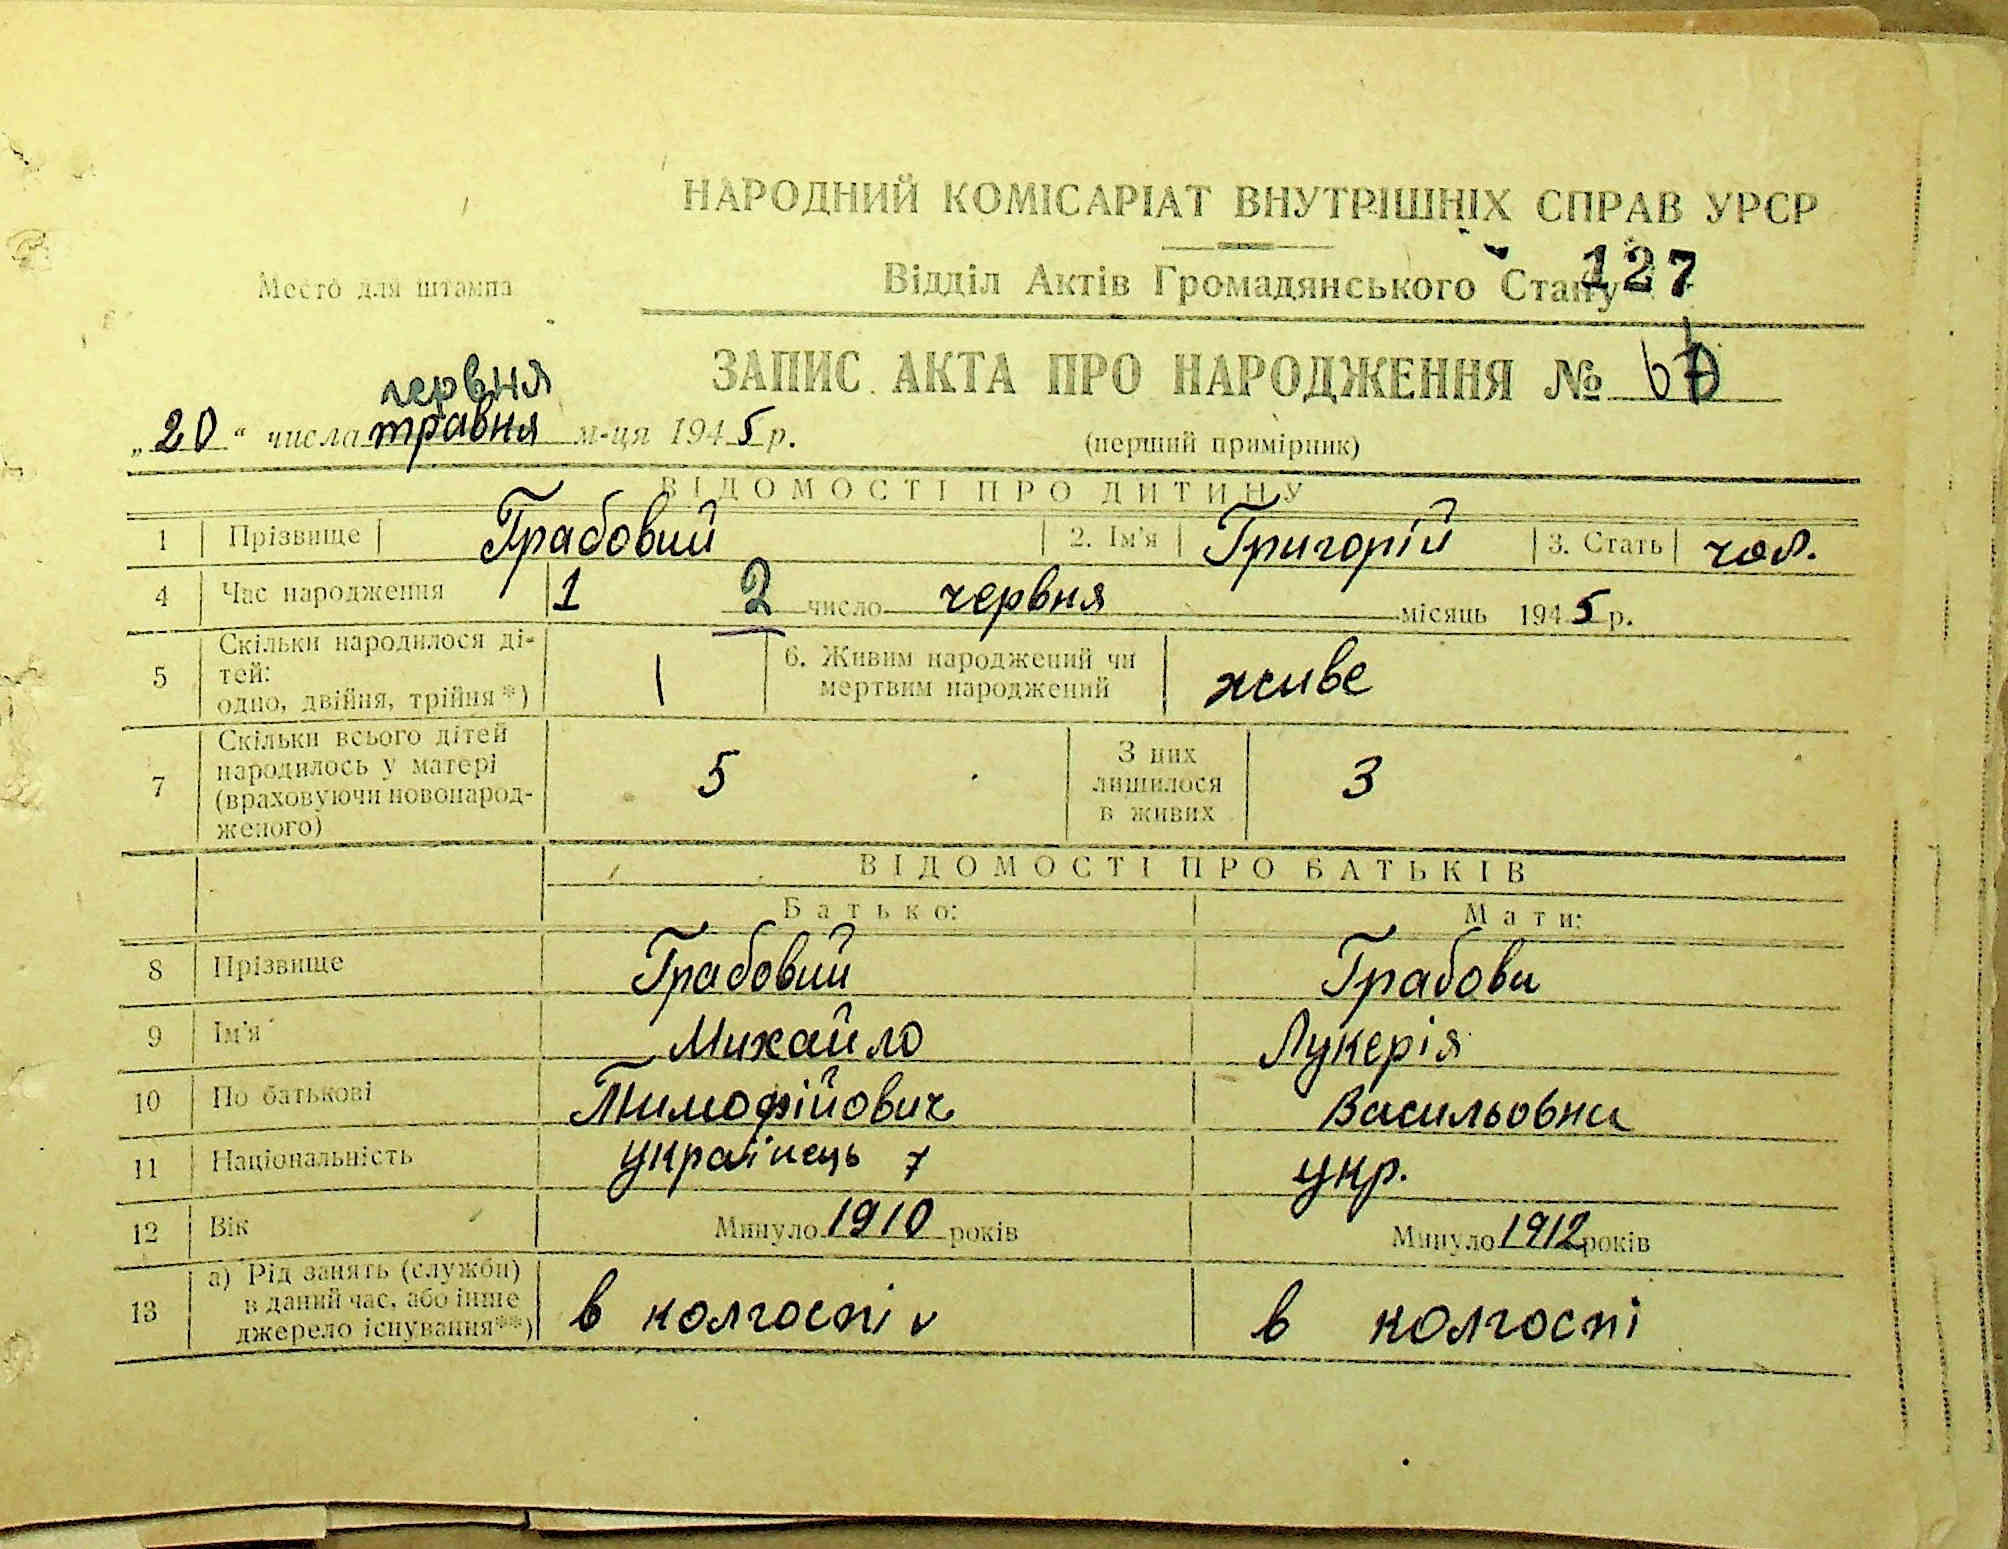 НАРОДНИЙ КОМІСАРІАТ ВНУТРІШНІХ СПРАВ УРСР
Место для штампа
Відділ Актів Громадянського Стану
127
ЗАПИС АКТА ПРО НАРОДЖЕННЯ №
червня
„20“ числа травня м-ця 1945 р.
(перший примірник)
ВІДОМОСТІ ПРО ДИТИНУ
1 Прізвище Грабовий 2. Ім'я Григорій 3. Стать чол.
4 Час народження 1 2 число червня місяць 1945 р.
5 Скільки народилося ді-
тей:
одно, двійня, трійня*)
1
6. Живим народжений чи
мертвим народжений
живе
7 Скільки всього дітей
народилось у матері
(враховуючи новонарод-
женого)
5
З них
лишилося
в живих
3
ВІДОМОСТІ ПРО БАТЬКІВ
Батько: Мати:
8 Прізвище Грабовий Грабова
9 Ім'я Михайло Лукерія
10 По батькові Тимофійович Васильовна
11 Національність українець 7 укр.
12 Вік Минуло 1910 років Минуло 1912 років
13 а) Рід занять (служби)
в даний час, або інше
джерело існування**)
в колгоспі v в колгоспі